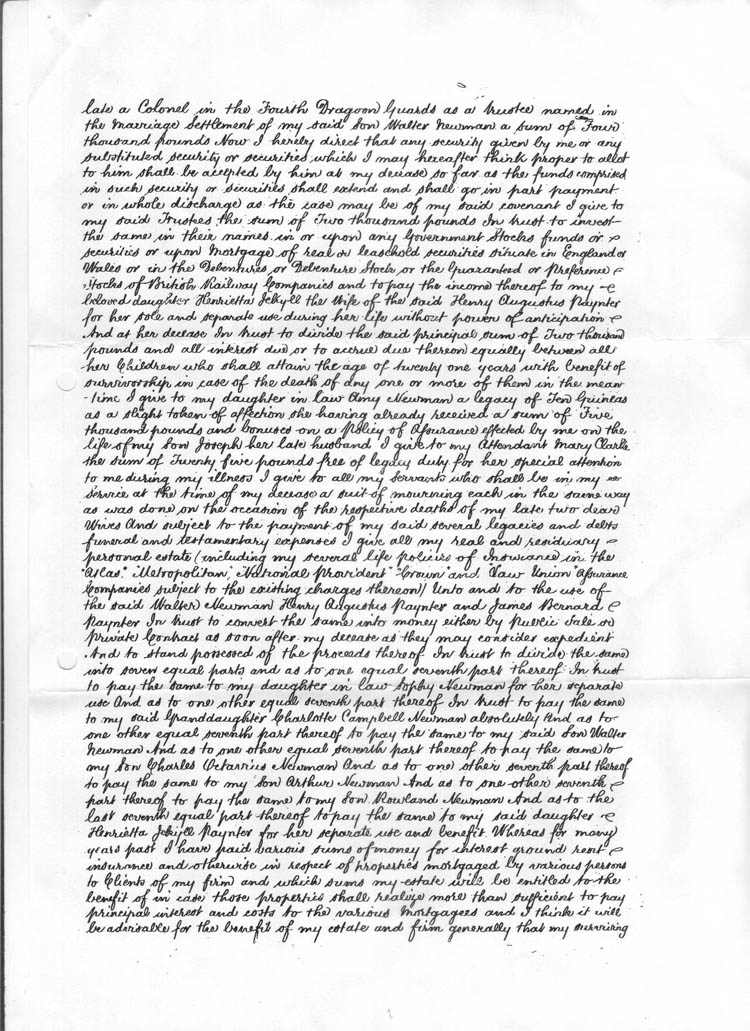 late a Colonel in the Fourth Dragoon Guards as a trustee named in
the Marriage Settlement of my said Son Walter Newman a sum of Four
thousand pounds Now I hereby direct that any security given by me or any
substituted security or securities which I may hereafter think proper to allot
to him shall be accepted by him at my decease so far as the funds comprised
in such security or securities shall extend and shall go in part payment
or in whole discharge as the case may be of my said covenant I give to
my said Trustees the sum of Two thousand pounds In trust to invest
the same in their names in or upon any Government Stocks funds or
securities or upon Mortgage of real or leasehold securities situate in England or
Wales or in the Debentures or Debenture Stock or the Guaranteed or Preference
Stocks of British Railway Companies and to pay the income thereof to my
beloved daughter Henrietta Jekyll the Wife of the said Henry Augustus Paynter
for her sole and separate use during her life without power of anticipation
And at her decease In trust to divide the said principal sum of Two thousand
pounds and all interest due or to accrue due thereon equally between all
her Children who shall attain the age of twenty one years with benefit of
survivorship in case of the death of any one or more of them in the mean
-time I give to my daughter in law Amy Newman a legacy of Ten Guineas
as a slight token of affection she having already received a sum of Five
thousand pounds and bonuses on a Policy of Assurance effected by me on the
life of my Son Joseph her late husband I give to my Attendant Mary Clarke
the sum of Twenty five pounds free of legacy duty for her special attention
to me during my illness I give to all my servants who shall be in my
service at the time of my decease a suit of mourning each in the same way
as was done on the occasion of the respective deaths of my late two dear
Wives And subject to the payment of my said several legacies and debts
funeral and testamentary expenses I give all my real and residuary
personal estate (including my several life policies of Insurance in the
"Atlas," "Metropolitan," "National Provident" "Crown" and "Law Union" Assurance
Companies subject to the existing charges thereon) Unto and to the use of
the said Walter Newman Henry Augustus Paynter and James Bernard
Paynter In trust to convert the same into money either by Public Sale or
Private Contract as soon after my decease as they may consider expedient
And to stand possessed of the proceeds thereof In trust to divide the same
into seven equal parts and as to one equal seventh part thereof In trust
to pay the same to my daughter in law Sophy Newman for her separate
use And as to one other equal seventh part thereof In trust to pay the same
to my said Granddaughter Charlotte Campbell Newman absolutely And as to
one other equal seventh part thereof to pay the same to my said Son Walter
Newman And as to one other equal seventh part thereof to pay the same to
my Son Charles Octavius Newman And as to one other seventh part thereof
to pay the same to my Son Arthur Newman And as to one other seventh
part thereof to pay the same to my Son Rowland Newman And as to the
last seventh equal part thereof to pay the same to my said daughter
Henrietta Jekyll Paynter for her separate use and benefit. Whereas for many
years past I have paid various sums of money for interest ground rent
insurance and otherwise in respect of properties mortgaged by various persons
to Clients of my firm and which sums my estate will be entitled to the
benefit of in case those properties shall realize more than sufficient to pay
principal interest and costs to the various Mortgagees and I think it will
be advisable for the benefit of my estate and firm generally that my surviving